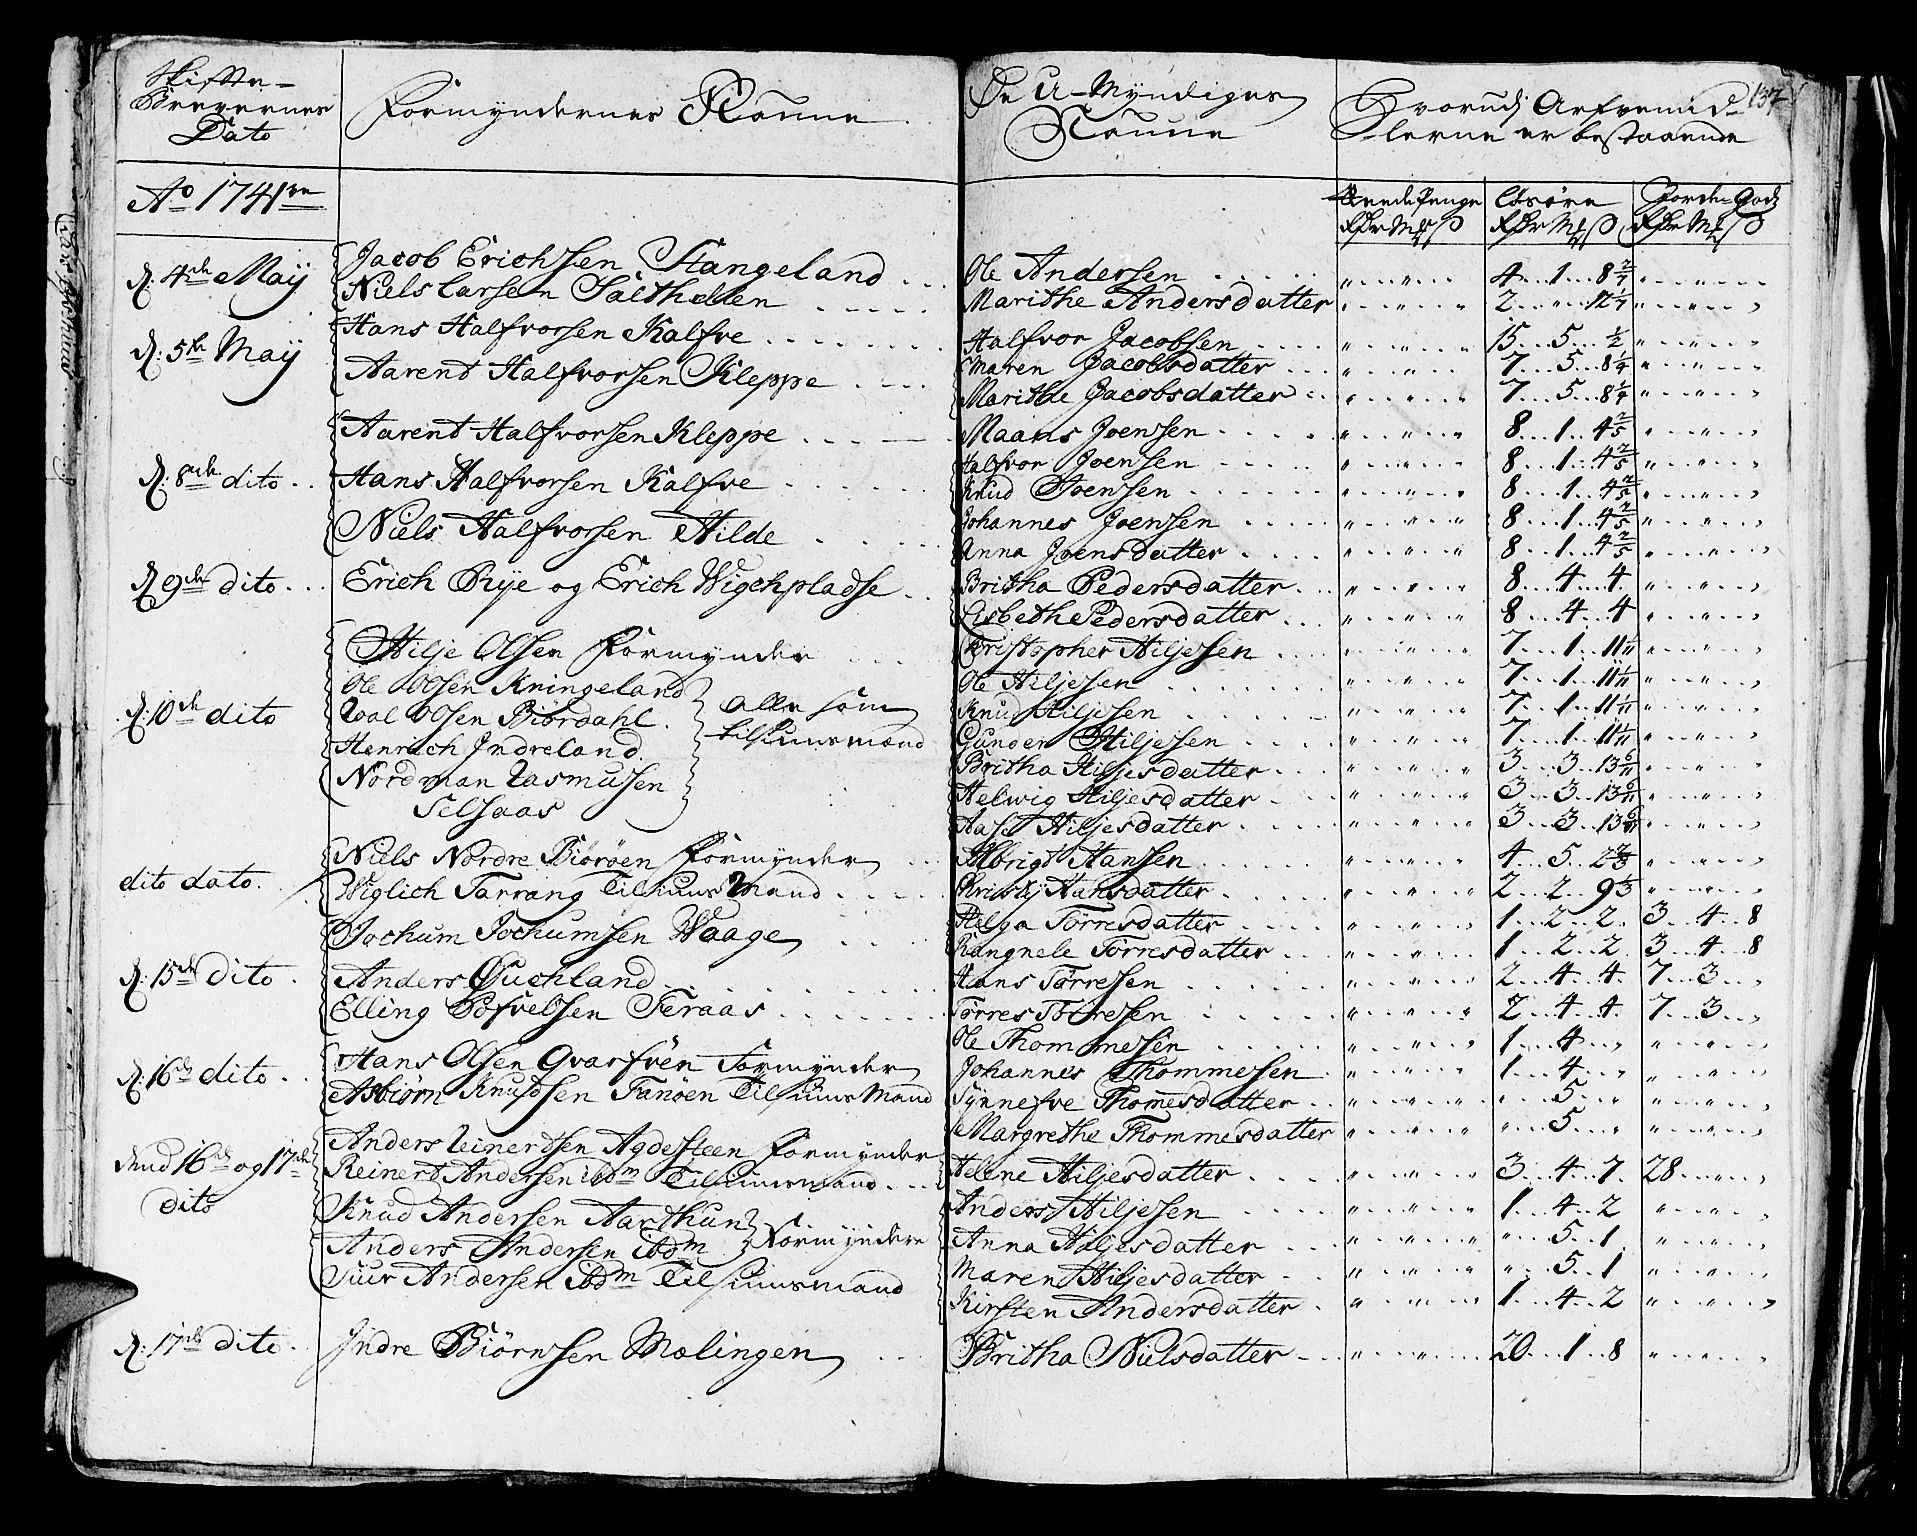 Skifte-
Brevernes
Dato
Formyndernes Naune
De U-Myndiges
Naune
Hvorudj Arfvemid-
lerne er bestaaende
137
Ao 1741ve
Reede Penge
Løsøre
Jorde-Gods
Rdr M ß
Rdr M ß
Rdr M ß
d: 4de Maÿ
Jacob Erichsen Stangeland
Ole Andersen 4 1 8 2/7
Niels Larsen Salthellen
Marithe Andersdatter 2 " 12 1/7
d: 5te Maÿ
Hans Halfvorsen Kalfve
Halfvor Jacobsen 15 5 1/2
Aarent Halfvorsen Kleppe
Maren Jacobsdatter 7 5 8 1/4
Marithe Jacobsdatter 7 5 8 1/4
Aarent Halfvorsen Kleppe
Maans Joensen 8 1 4 2/5
d: 8de dito
Hans Halfvorsen Kalfve
Halfvor Joensen 8 1 4 2/5
Knud Joensen 8 1 4 2/5
Niels Halfvorsen Hilde
Johannes Joensen 8 1 4 2/5
Anna Joensdatter 8 1 4 2/5
d: 9de dito
Erich Rÿe og Erich Wigchpladse
Britha Pedersdatter 8 4 4
Lisbethe Pedersdatter 8 4 4
Hilje Olsen Formynder
Christopher Hiljesen 7 1 11 1/11
Ole Olsen Kningeland
Ole Hiljesen 7 1 11 1/11
d: 10de dito
Roal Olsen Biørdahl
alle som
Knud Hiljesen 7 1 11 1/11
Henrich Indreland
tilsiunsmænd
Gunder Hiljesen 7 1 11 1/11
Nordman Rasmusen
Britha Hiljesdatter 3 3 13 6/11
Selsaas
Helwig Hiljesdatter 3 3 13 6/11
Aase Hiljesdatter 3 3 13 6/11
dito dato
Niels Nordre Biørøen Formynder
Albrigt Hansen 4 5 2 2/3
Wiglich Tarrang Tilsiuns Mand
Christj Hansdatter 2 2 9 1/3
Jochum Jochumsen Waage
Helga Tørresdatter 1 2 2 3 4 8
Rangnele Tørresdatter 1 2 2 3 4 8
d: 15de dito
Anders Øuchland
Hans Tørresen 2 4 4 7 3
Elling Pofvelsen Feraas
Tørres Tørresen 2 4 4 7 3
Ole Thommesen 1 4
d: 16de dito
Hans Olsen Qvarfven Formynder
Johannes Thommesen 1 4
Asbiørn Knudsen Fanøen Tilsiuns Mand
Synnefve Thomesdatter " 5
Margrethe Thommesdatter " 5
dend 16de og 17de
dito
Anders Reinertsen Agdesteen Formynder
Reinert Andersen ibdm Tilsiunsmand
Helene Hiljesdatter 3 4 7 28
Knud Andersen Aarthun
Anders Hiljesen 1 4 2
Anders Andersen ibdm
Formyndere
Anna Hiljesdatter " 5 1
Siur Andersen ibdm Tilsiunsmand
Maren Hiljesdatter " 5 1
Kirsten Andersdatter 1 4 2
d: 17de dito
Indre Biørnsen Mælingen
Britha Nielsdatter 20 1 8